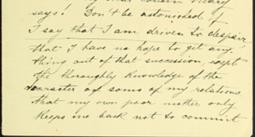 says! Don't be astonished if
I say that I am driven to despair
that I have no hope to get any-
thing out of that succession, sept
the thoroughly knowledge of the
character of some of my relations
that my own poor mother only
keeps me back not to commit